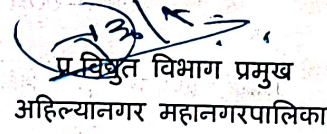 प्र.विद्युत विभाग प्रमुख
अहिल्यानगर महानगरपालिका